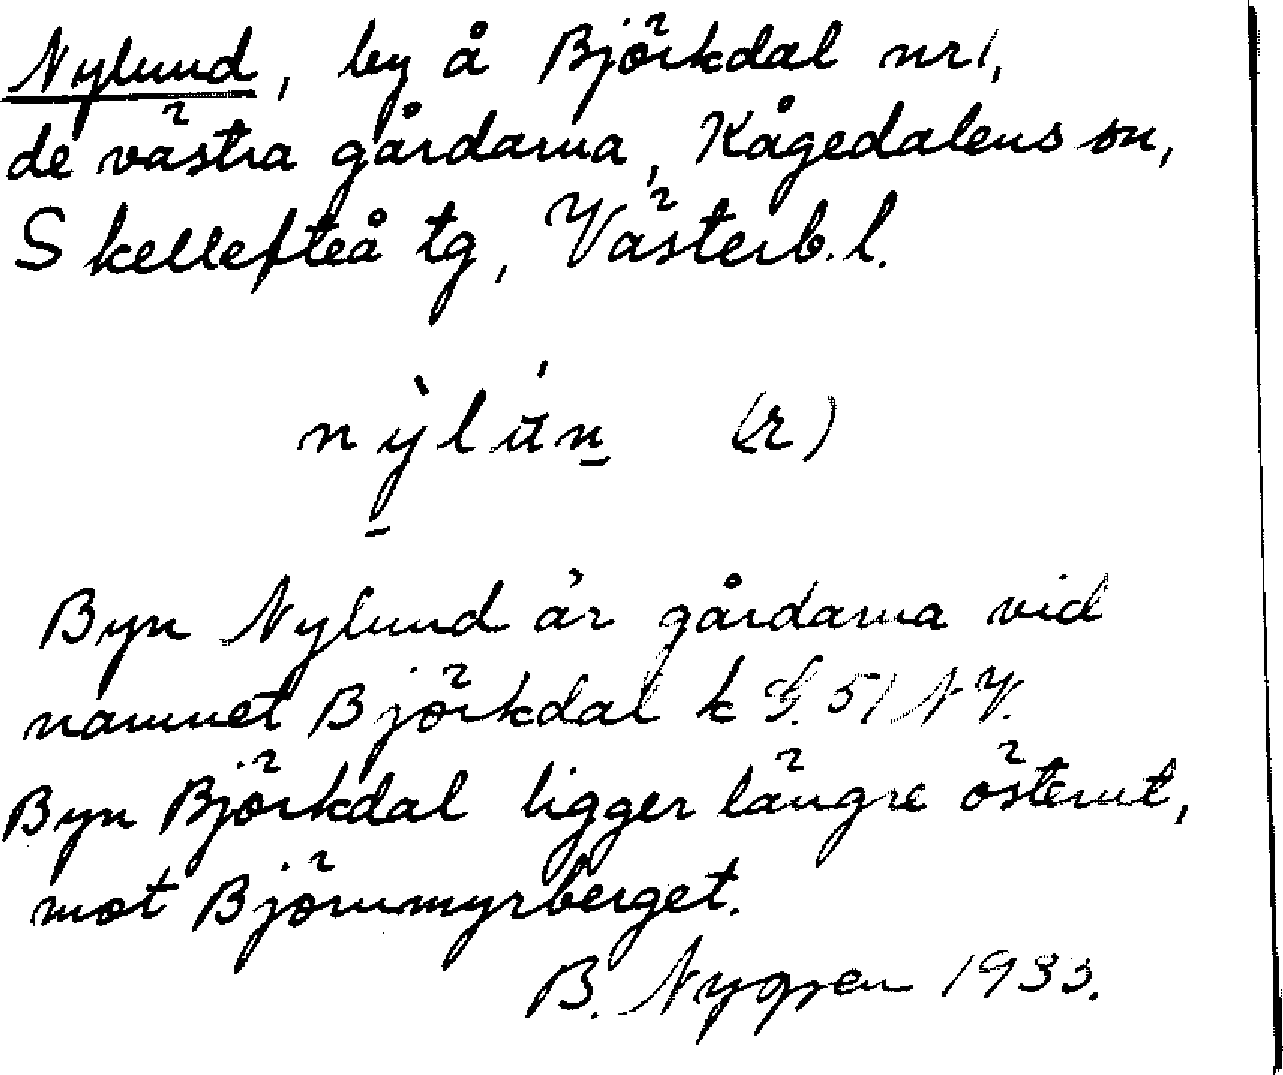 Nylund, by å Björkdal nr 1,
de västra gårdarna, Kågedalens sn,
Skellefteå tg, Västerb. l.
nỳlún (r)
Byn Nylund är gårdarna vid
namnet Björkdal k G. 51 NV.
Byn Björkdal ligger längre österut,
mot Björnmyrberget.
B. Nygren 1933.